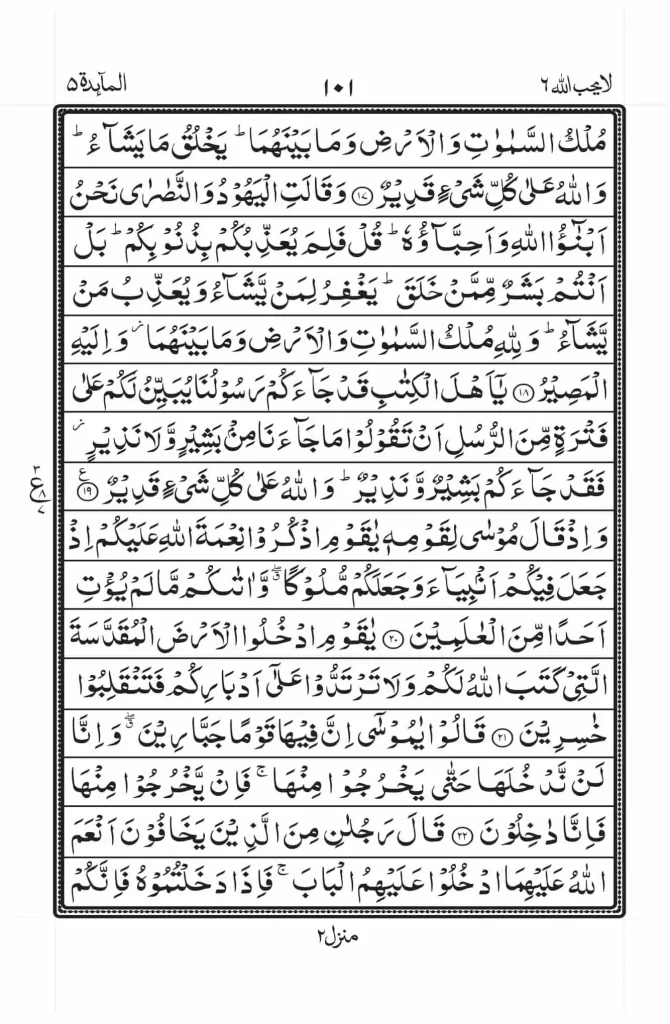 لا يحب الله ٦
١٠١
المآىِٕدة ٥
مُلْكُ السَّمٰوٰتِ وَالْاَرْضِ وَمَا بَيْنَهُمَا ؕ يَخْلُقُ مَا يَشَآءُ ؕ
وَاللّٰهُ عَلٰى كُلِّ شَىْءٍ قَدِيْرٌ ﴿١٧﴾ وَقَالَتِ الْيَهُوْدُ وَالنَّصٰرٰى نَحْنُ
اَبْنٰٓؤُا اللّٰهِ وَاَحِبَّآؤُهٗ ؕ قُلْ فَلِمَ يُعَذِّبُكُمْ بِذُنُوْبِكُمْ ؕ بَلْ
اَنْتُمْ بَشَرٌ مِّمَّنْ خَلَقَ ؕ يَغْفِرُ لِمَنْ يَّشَآءُ وَيُعَذِّبُ مَنْ
يَّشَآءُ ؕ وَلِلّٰهِ مُلْكُ السَّمٰوٰتِ وَالْاَرْضِ وَمَا بَيْنَهُمَا ز وَاِلَيْهِ
الْمَصِيْرُ ﴿١٨﴾ يٰۤاَهْلَ الْكِتٰبِ قَدْ جَآءَكُمْ رَسُوْلُنَا يُبَيِّنُ لَكُمْ عَلٰى
فَتْرَةٍ مِّنَ الرُّسُلِ اَنْ تَقُوْلُوْا مَا جَآءَنَا مِنْۢ بَشِيْرٍ وَّلَا نَذِيْرٍ ز
فَقَدْ جَآءَكُمْ بَشِيْرٌ وَّنَذِيْرٌ ؕ وَاللّٰهُ عَلٰى كُلِّ شَىْءٍ قَدِيْرٌ ﴿١٩﴾ ع
٣ ع ٨ ٧
وَاِذْ قَالَ مُوْسٰى لِقَوْمِهٖ يٰقَوْمِ اذْكُرُوْا نِعْمَةَ اللّٰهِ عَلَيْكُمْ اِذْ
جَعَلَ فِيْكُمْ اَنْۢبِيَآءَ وَجَعَلَكُمْ مُّلُوْكًا ۗۖ وَّاٰتٰىكُمْ مَّا لَمْ يُؤْتِ
اَحَدًا مِّنَ الْعٰلَمِيْنَ ﴿٢٠﴾ يٰقَوْمِ ادْخُلُوا الْاَرْضَ الْمُقَدَّسَةَ
الَّتِىْ كَتَبَ اللّٰهُ لَكُمْ وَلَا تَرْتَدُّوْا عَلٰٓى اَدْبَارِكُمْ فَتَنْقَلِبُوْا
خٰسِرِيْنَ ﴿٢١﴾ قَالُوْا يٰمُوْسٰٓى اِنَّ فِيْهَا قَوْمًا جَبَّارِيْنَ ۗۖ وَاِنَّا
لَنْ نَّدْخُلَهَا حَتّٰى يَخْرُجُوْا مِنْهَا ۚ فَاِنْ يَّخْرُجُوْا مِنْهَا
فَاِنَّا دٰخِلُوْنَ ﴿٢٢﴾ قَالَ رَجُلٰنِ مِنَ الَّذِيْنَ يَخَافُوْنَ اَنْعَمَ
اللّٰهُ عَلَيْهِمَا ادْخُلُوْا عَلَيْهِمُ الْبَابَ ۚ فَاِذَا دَخَلْتُمُوْهُ فَاِنَّكُمْ
منزل ٢